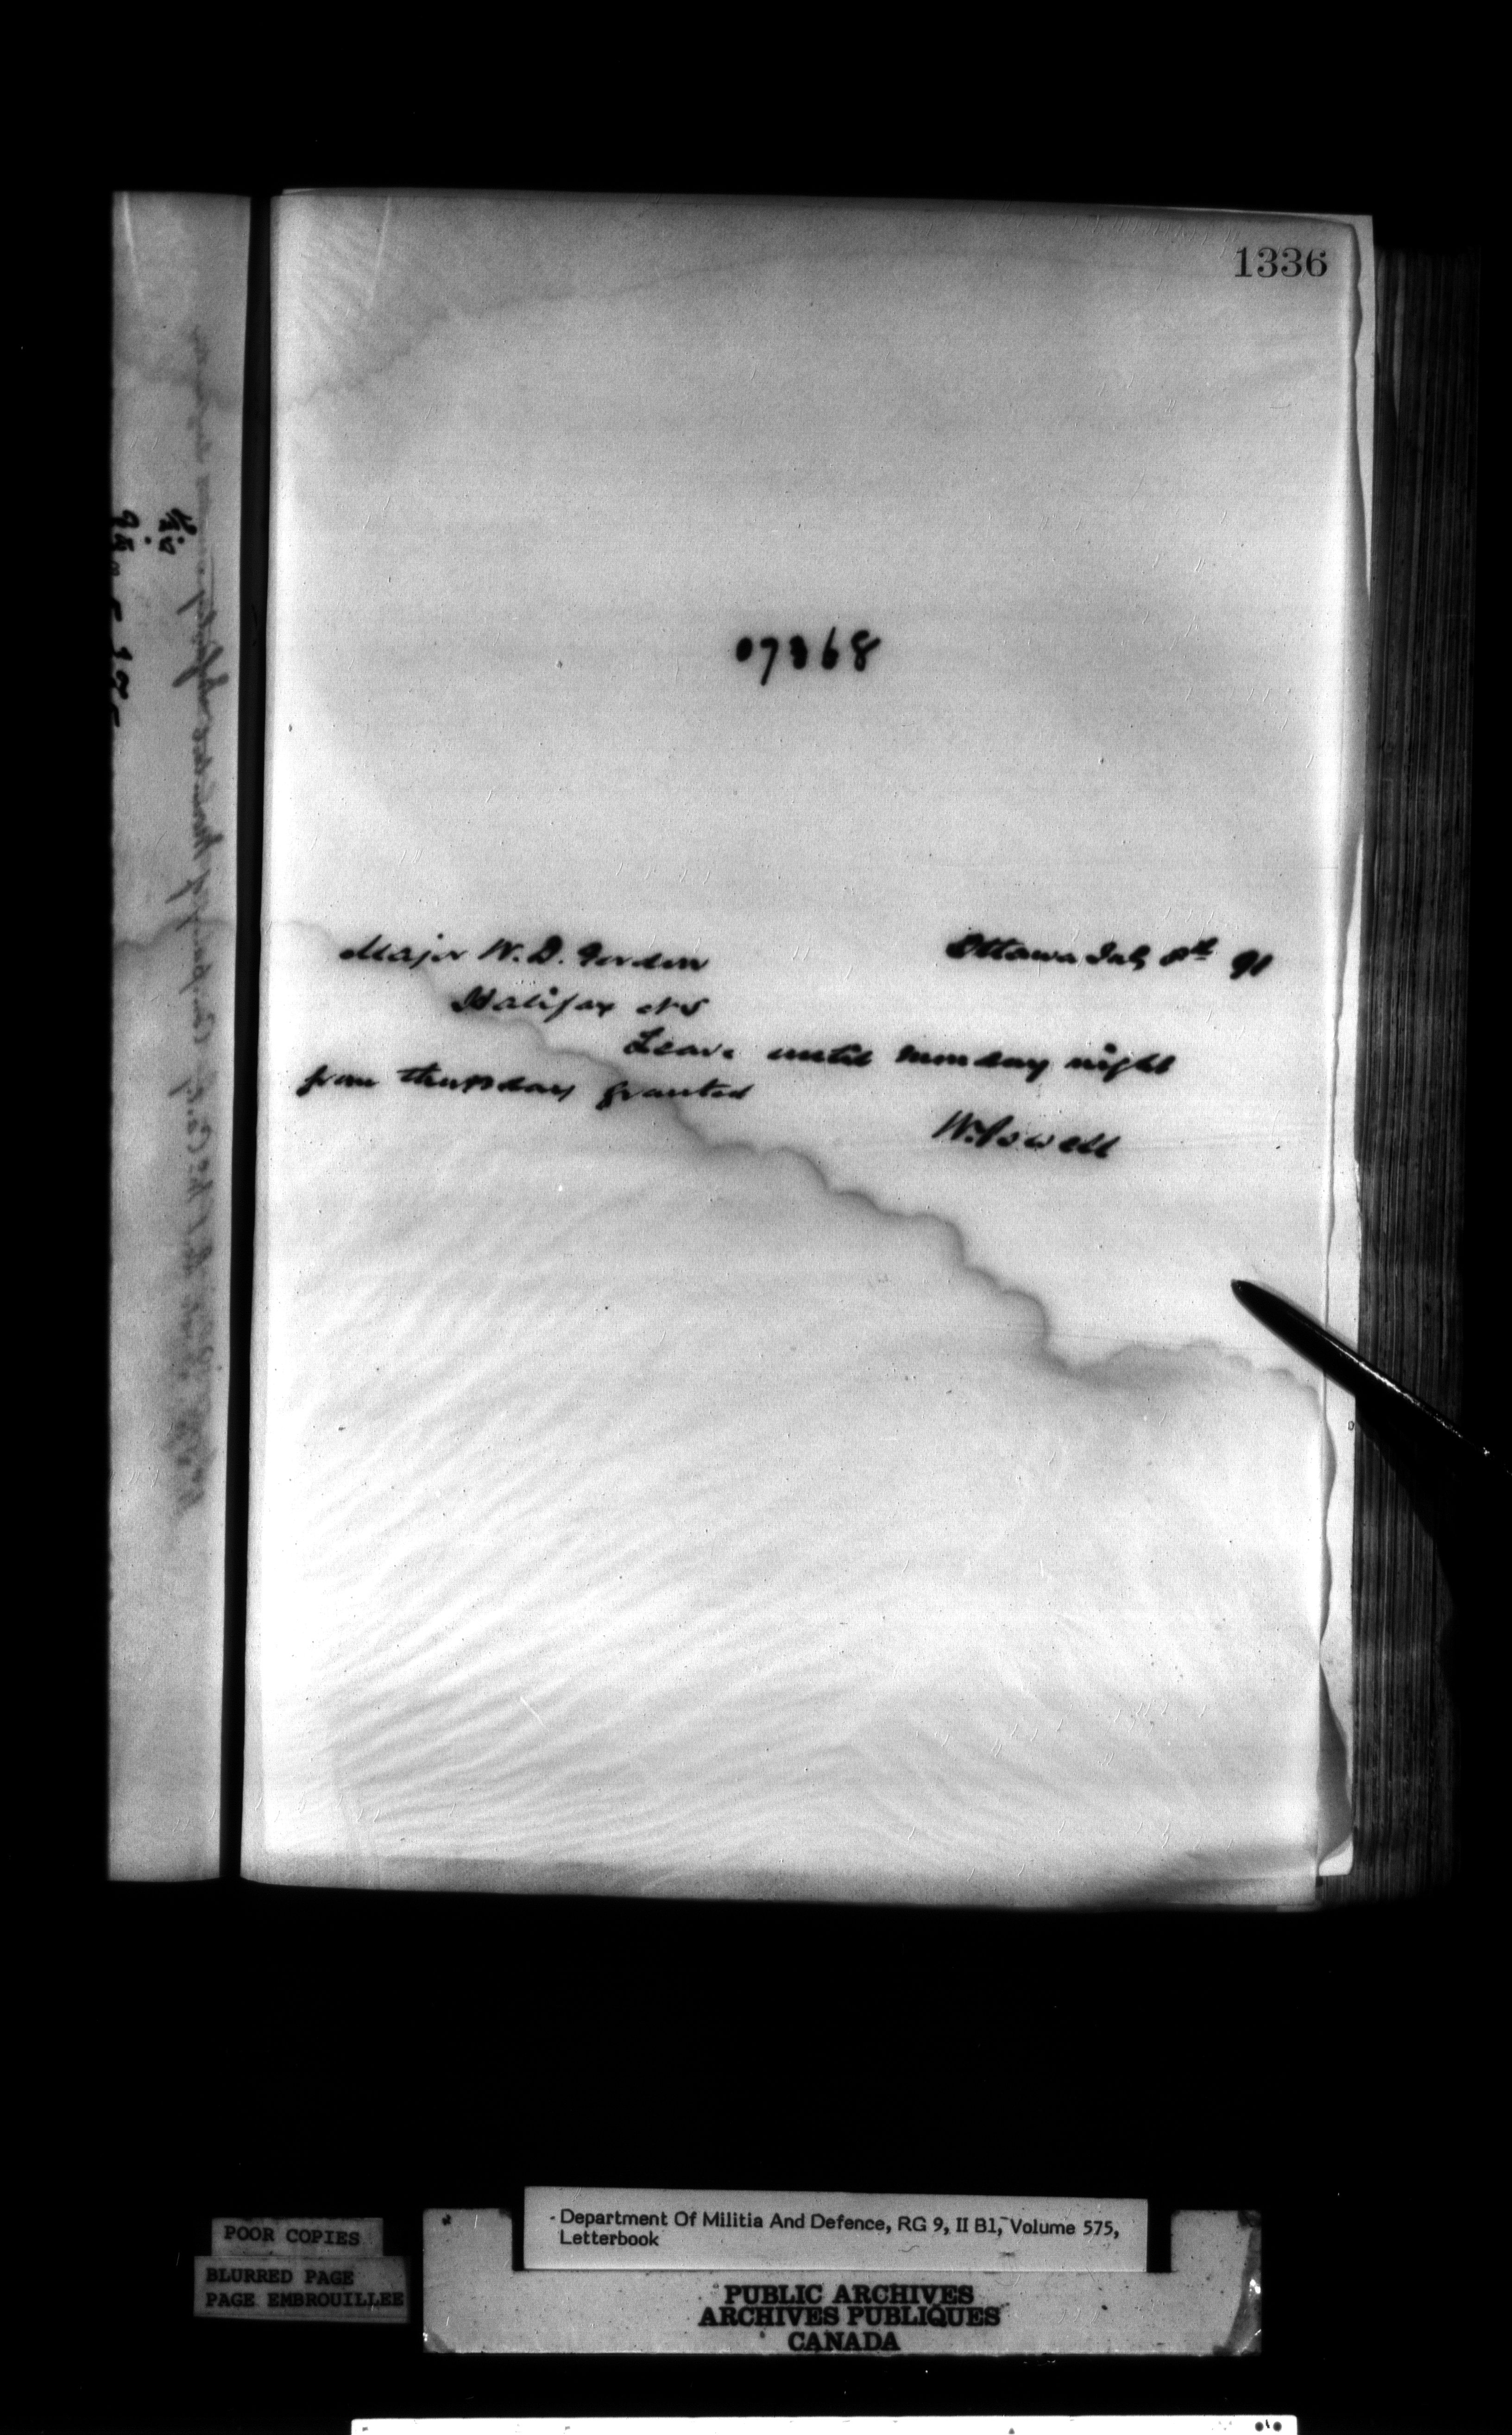 1336
07368
Major W. D. Gordon
Ottawa July 8th 91
Halifax NS
Leave until monday night
from thursday granted
W. Powell
Department Of Militia And Defence, RG 9, II B1, Volume 575,
Letterbook
POOR COPIES
BLURRED PAGE
PAGE EMBROUILLEE
PUBLIC ARCHIVES
ARCHIVES PUBLIQUES
CANADA